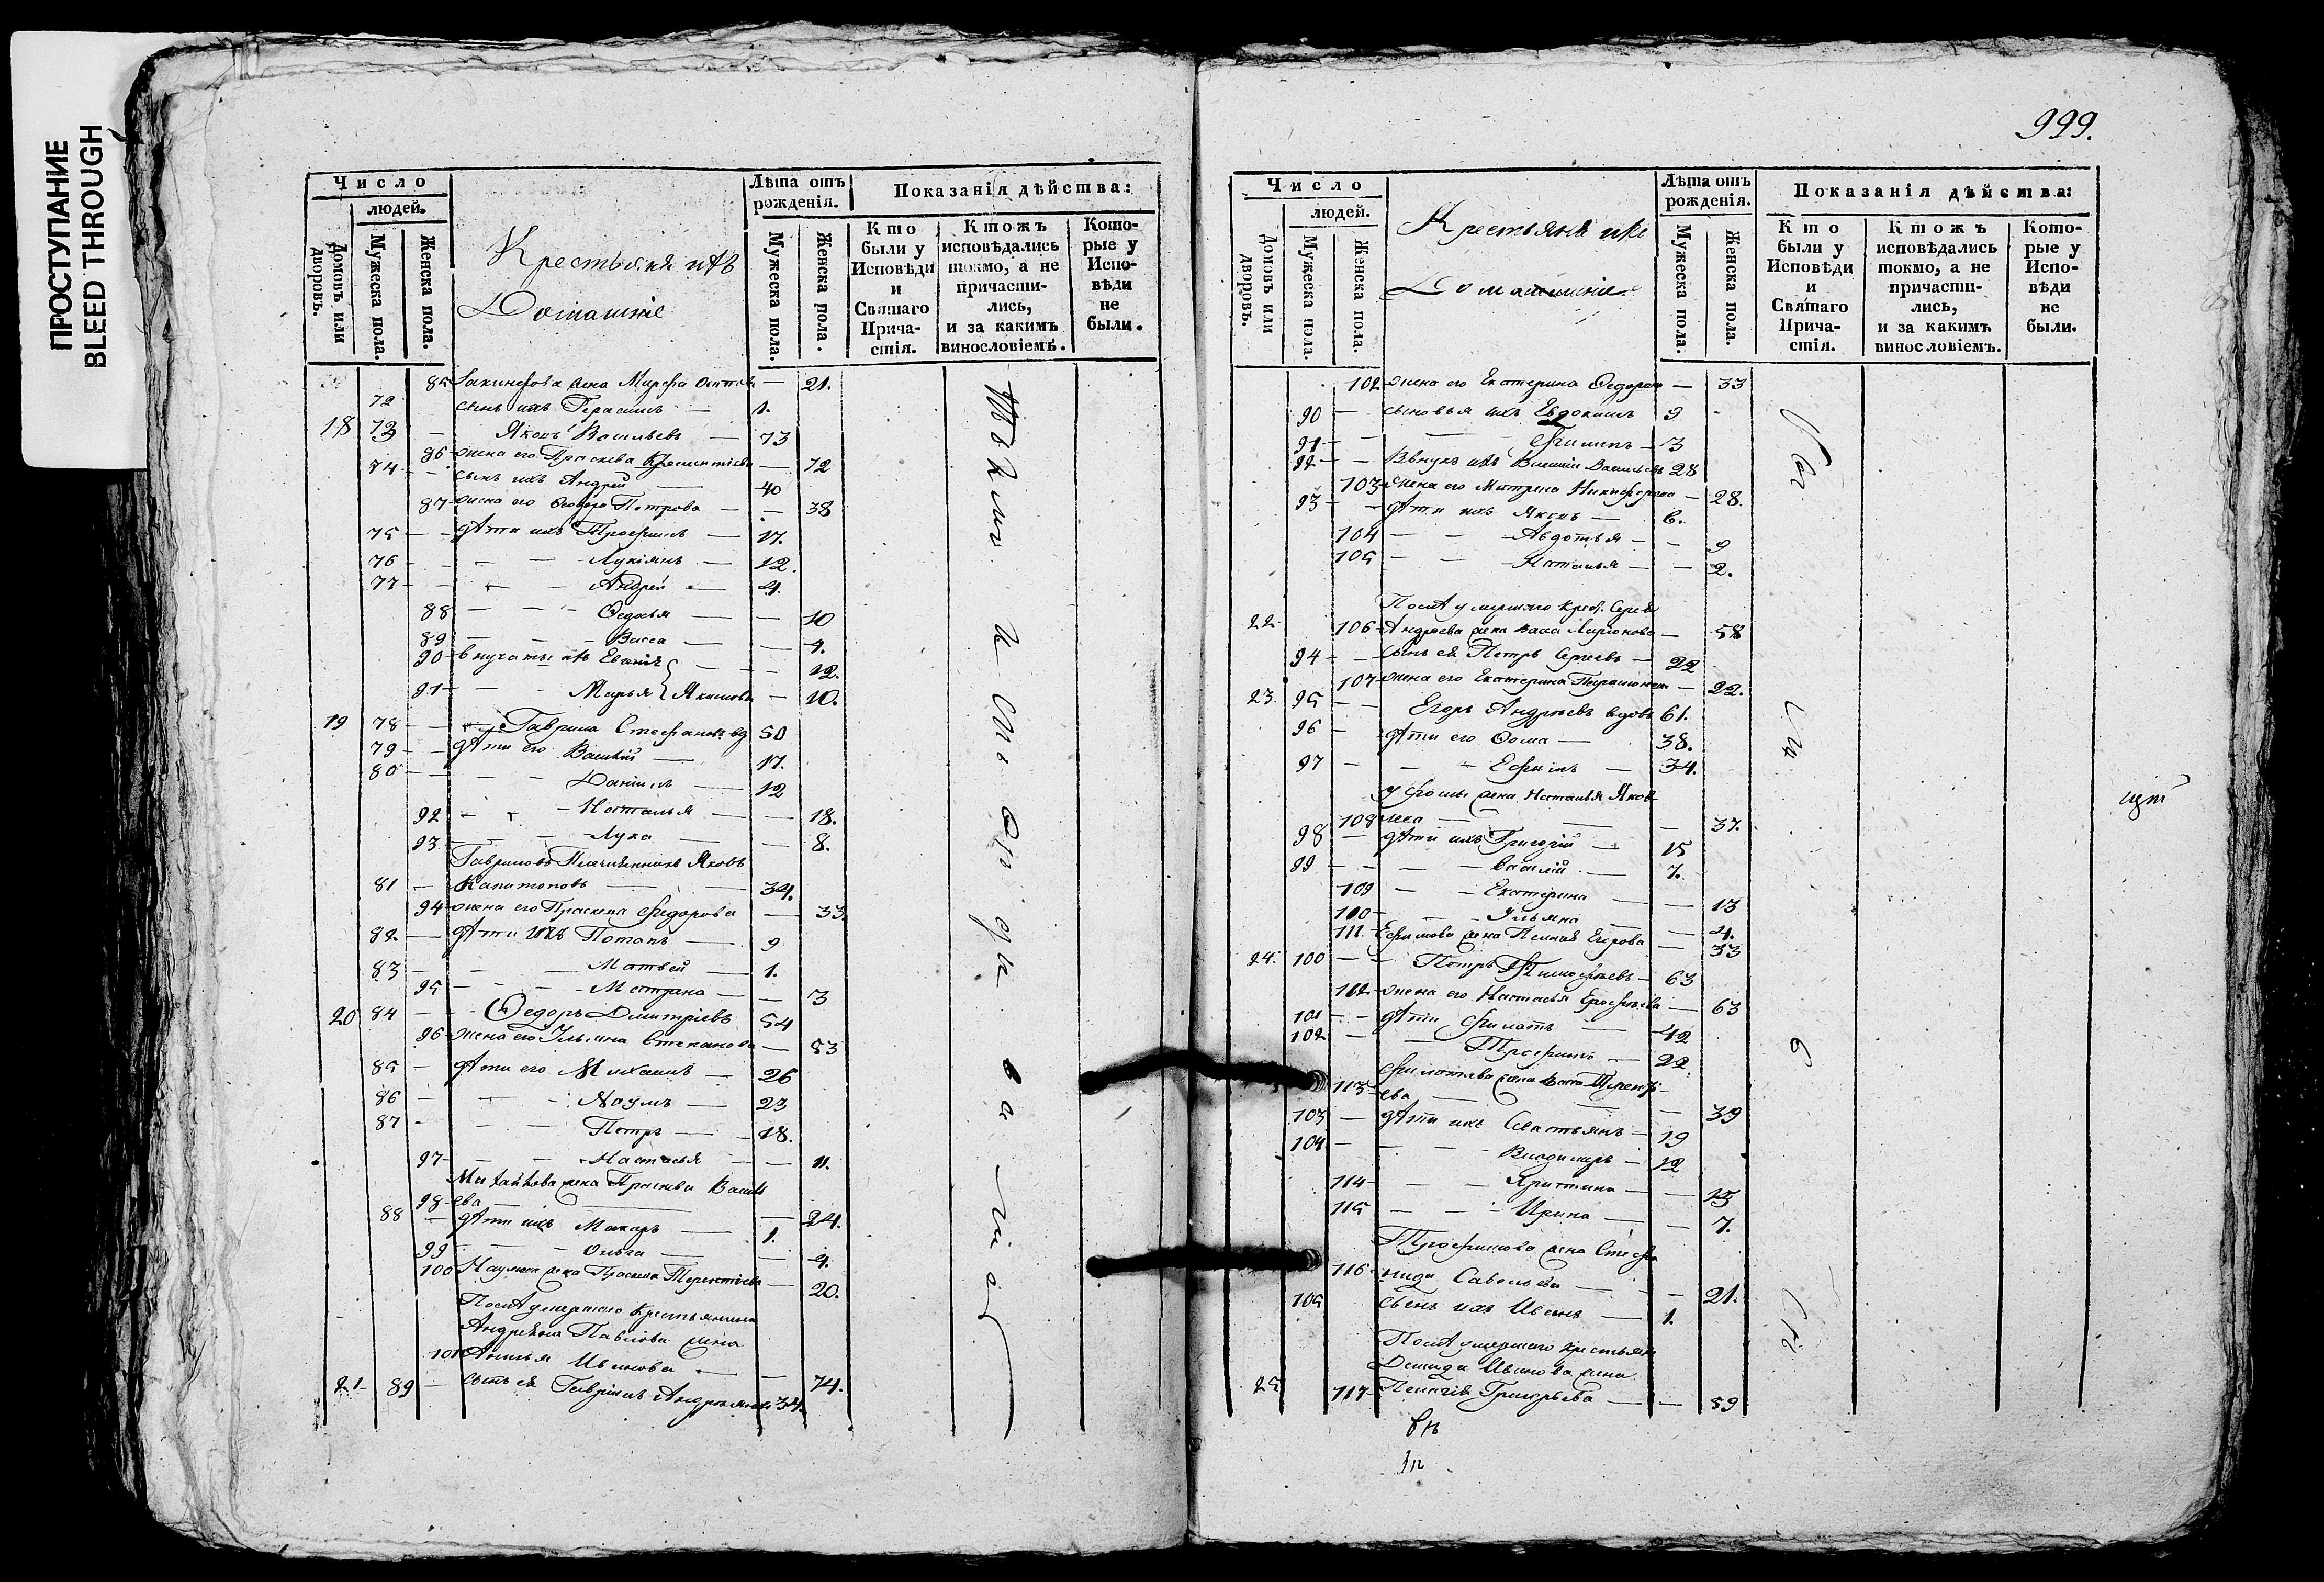 ПРОСТУПАНИЕ
BLEED THROUGH
Число
людей.
Домовъ или дворовъ.
Мужеска пола.
Женска пола.
Крестьяня ихъ
Домашніе
Лѣта отъ рожденія.
Мужеска пола.
Женска пола.
Показанія дѣйства:
Кто были у Исповѣди и Святаго Причастія.
Ктожъ исповѣдались токмо, а не причастились, и за какимъ винословіемъ.
Которые у Исповѣди не были.
85 жена Марфа 21.
72 сынъ ихъ Герасимъ — 1.
18 73 — Якимъ Васильевъ — 73
86 жена его Праскева — 72
74 — сынъ ихъ Андрей — 40
87 жена его Петрова — 38
75 — дѣти ихъ Трофимъ — 17.
76 — Лукіянъ — 12.
77 — Андрей — 4.
88 — Федосья — 10
89 — Васса — 4.
90 внучаты ихъ Евгенія — 12.
91 — Марья Якимовы — 10.
19 78 — Гаврила Стефановъ вд 50
79 — дѣти его Василій — 17.
80 — Данилъ — 12
92 — Наталья — 18.
93 — Лука — 8.
Гавриловъ Племянникъ Яковъ
81 — Капитоновъ — 34.
94 жена его Праскева Федорова — 33.
82 — дѣти ихъ Потапъ — 9
83 — Матвей — 1.
95 — Матрана — 3
20 84 — Федоръ Дмитріевъ 54
96 жена его Ульяна Степанова — 53
85 — дѣти его Михаилъ — 26
86 — Наумъ — 23
87 — Петръ — 18.
97 — Настасья — 11.
Михайлова жена Праскева Василь
98 ева — 24.
88 — дѣти ихъ Макаръ — 1.
99 — Ольга — 4.
100 Наумова жена Праскева Терентіева — 20.
Послѣ умершаго Крестьянина
Андреяна Павлова жена
101 Анисья Иванова — 74.
21 89 — сынъ ея Гавріилъ Андреяновъ 34.
999.
Число
людей.
Домовъ или дворовъ.
Мужеска пола.
Женска пола.
Крестьяня ихъ
Домашніе
Лѣта отъ рожденія.
Мужеска пола.
Женска пола.
Показанія дѣйства:
Кто были у Исповѣди и Святаго Причастія.
Ктожъ исповѣдались токмо, а не причастились, и за какимъ винословіемъ.
Которые у Исповѣди не были.
102 жена его Екатерина Федорова — 33
90 — сыновья ихъ Евдокимъ 9
91 — Филипъ — 3
92 — Внукъ ихъ Васильевъ 28
103 жена его Матрена Никифорова — 28.
93 — дѣти ихъ Якимъ — 6.
104 — Авдотья — 9
105 — Наталья — 2.
Послѣ умершаго Крест. Сергея
22 106 Андреева жена Васса Ларіонова — 58
94 — сынъ ея Петръ Сергеевъ — 22
107 жена его Екатерина — 22.
23. 95 — Егоръ Андреевъ вдовъ 61.
96 — дѣти его Фома — 38.
97 — Ефимъ — 34.
У Фомы жена Наталья Яков
108 лева — 37.
98 — дѣти ихъ Григорій — 15
99 — Василій — 7.
109 — Екатерина — 13
110 — Ульяна — 4.
111 Ефимова жена Пелагея Егорова — 33
24. 100 — Петръ Тимофеевъ — 63
112 жена его Настасья Ерофеева — 63
101 — дѣти Филатъ — 42
102 — Трофимъ — 22
Филатева жена Васса Теренті-
113 ева — 39
103 — дѣти ихъ Севастьянъ — 19
104 — Владимиръ — 12
114 — Христина — 15
115 — Ирина — 7.
Трофимова жена Стефа
116 нида Савельева — 21.
105 сынъ ихъ Иванъ — 1.
Послѣ умершаго крестьян
Демида Иванова жена
25 117 Пелагія Григорьева — 59